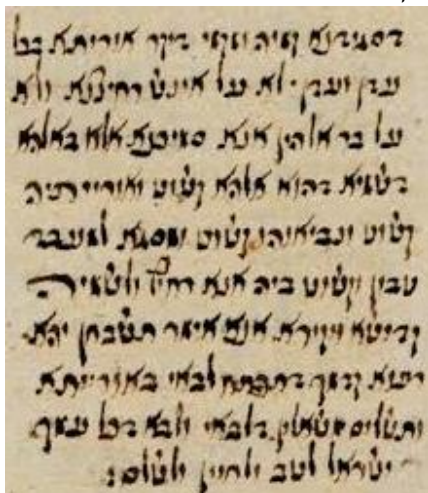 דסגידנא קמיה ומקמי דיקר אוריתא בכל
עדן ועדן· לא על אינש רחיצנא ולא
על בר אלהין אנא סמיכנא אלא באלהא
דשמיא דהוא אלהא קשוט ואורייתיה
קשוט ונביאוהי קשוט ומסגא למעבד
טבון וקשוט ביה אנא רחיץ ולשמיה
קדישא יקירא אנא אימר תשבחן יהא
רעוא קדמך דתפתח לבאי באורייתא
ותשלים משאלין דלבאי ולבא דכל עמך
ישראל לטב ולחיין ולשלם: